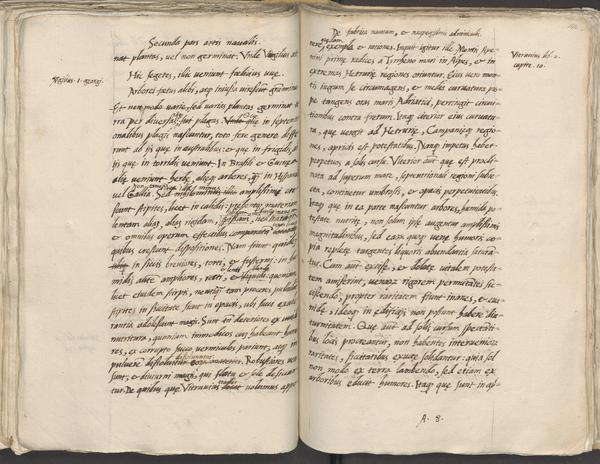 Secunda pars artis navalis.
nat plantas, vel non germinat. Unde Vergilius ait
Hic segetes, illic veniunt foelicius uvae.
Vergilius. 1. georgi.
Arborei foetus alibi, atque iniussa virescunt gramina
Et non modo varie, sed varias plantas germinat ter
ra per diversas sui plagas. que in septentri
onalibus plagis nascuntur, toto fere genere diffe
runt ab ijs que in australibus: et que in frigidis, ab
ijs que in torridis veniunt. In Brasilia et Guinea
aliae veniunt herbe, alieque arbores, quam in Hispania
vel Gallia. Sed
fiunt stirpites, hec in calidi:
lentam alias, alias rigidam,
et omnibus operum effectibus comparate
quibus crescunt dispositiones. Nam fiunt quidem
in siccis breviores, torti, et fusterni: in hu
midis autem ampliores, recti, et
licet eiusdem stirpis, nunquam tam proceres
stipites in siccitate sicut in opacis, ubi succi exube
rantia adolescunt magis. Sunt deteriores ex nimia
nutritura, quoniam immodicos cum habeant humo
res, ex corrupto succo vermiculos pariunt, atque in
pulverem dissolvitur materies. Robustiores vero
sunt, et diuturni magis, qui flatu et sole desiccan
tur. De quibus que Vitruvius tradit volumus appo
De fabrica navium, et navigationis adminiculis.
nere, exempla et rationes. Inquit igitur ille. Montis Ape
nini prime radices a Tyrrheno mari in Alpes, et in
extremas Hetrurie regiones oriuntur. Eius vero mon
tis iugum se circumagens, et media curvatura pro
pe tangens oras maris Adriatici, pertingit circui
tionibus contra fretum. Itaque citerior eius curvatu
ra, que vergit ad Hetrurie, Campanieque regio
nes, apricis est potestatibus. Namque impetus habet
perpetuos a solis cursu. Ulterior autem que est procli
nata ad superum mare, septentrionali regioni subie
cta, continetur umbrosis, et opacis perpetuitatibus.
Itaque que in ea parte nascuntur arbores, humida po
testate nutrite, non solum ipse augentur amplissimis
magnitudinibus, sed earum quoque vene humoris co
pia replete turgentes liquoris abundantia satura
tur. Cum autem excise, et dolate vitalem potesta
tem amiserint, venarum rigorem permutantes sic
cescendo, propter raritatem fiunt inanes, et eva
nide, ideoque in edificijs non possunt habere diu
turnitatem. Que autem ad solis cursum spectanti
bus locis procreantur, non habentes interveniorum
raritates, siccitatibus exucte solidantur: quia sol
non modo ex terra lambendo, sed etiam ex
arboribus educit humores. Itaque que sunt in ap-
Vitruvius lib. 2.
capite. 10.
A. 8.